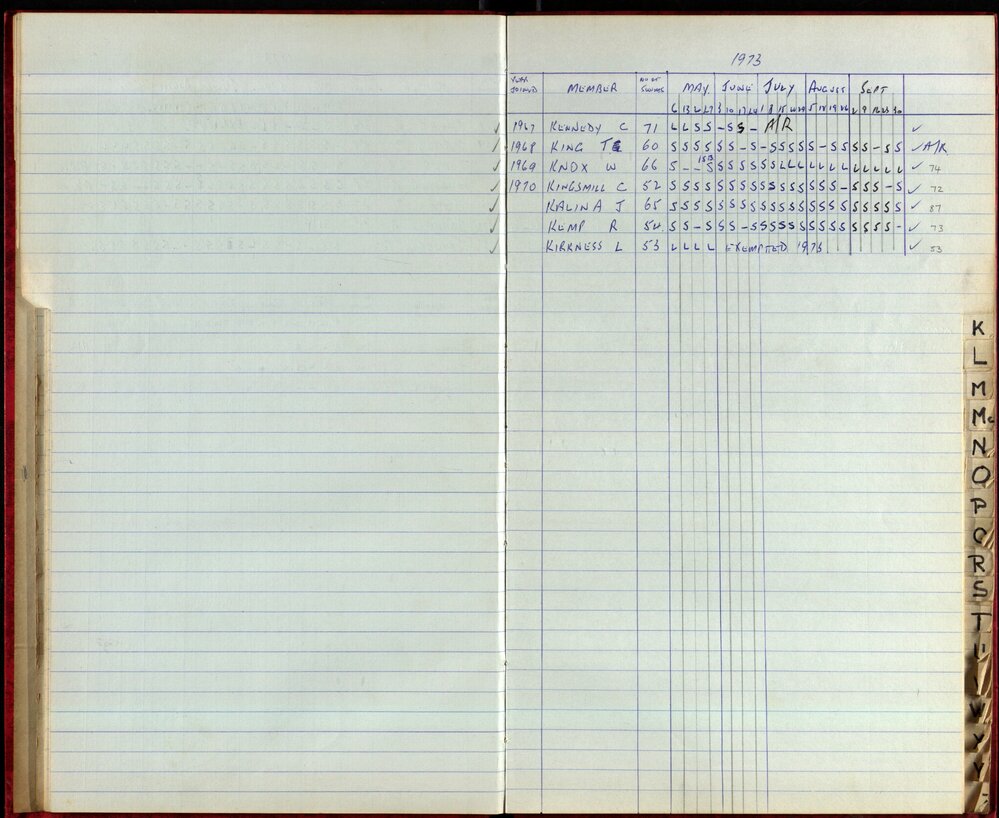 1973
YEAR JOINED MEMBER NO OF SWIMS MAY. JUNE JULY AUGUST SEPT
6 13 20 27 3 10 17 24 1 8 15 22 29 5 12 19 26 2 9 16 23 30
✓ 1967 KENNEDY C 71 L L S S - S S - A/R ✓
✓ 1968 KING T 60 S S S S S S - S - S S S S S - S S S S - S S ✓ A/R
✓ 1969 KNOX W 66 S - - S S S S S S S L L L L L L L L L L L L ✓ 74
✓ 1970 KINGSMILL C 52 S S S S S S S S S S S S S S S S - S S S - S ✓ 72
✓ KALINA J 65 S S S S S S S S S S S S S S S S S S S S S S ✓ 87
✓ KEMP R 54 S S - S S S - S S S S S S S S S S S S S S - ✓ 73
✓ KIRKNESS L 53 L L L L EXEMPTED 1973 ✓ 53
K
L
M
Mc
N
O
P
Q
R
S
T
U
V
W
X
Y